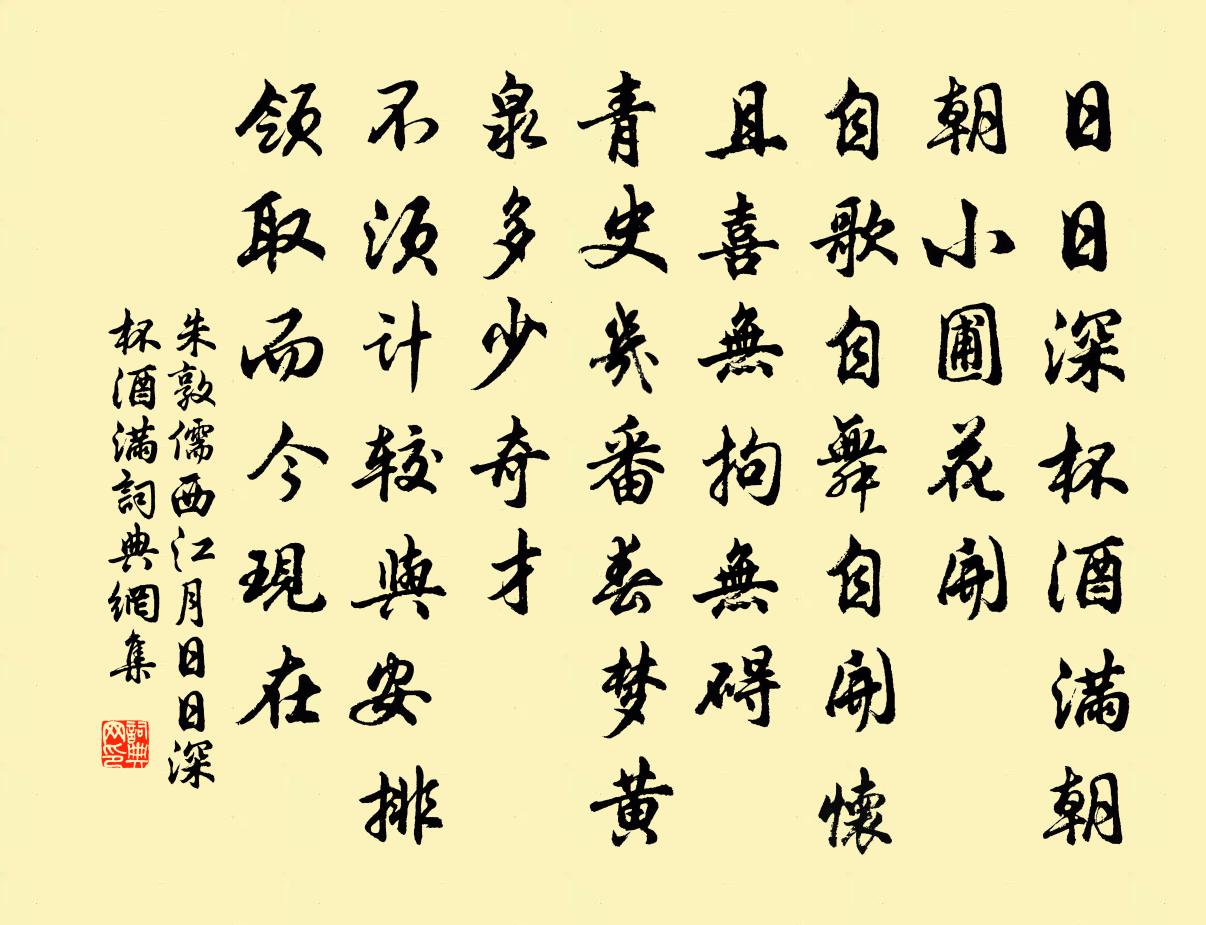 日日深杯酒滿朝
朝小圃花開
自歌自舞自開懷
且喜無拘無碍
青史幾番春梦黄
泉多少奇才
不須计较與安排
領取而今現在
朱敦儒西江月日日深
杯酒滿詞典網集
詞典
网印